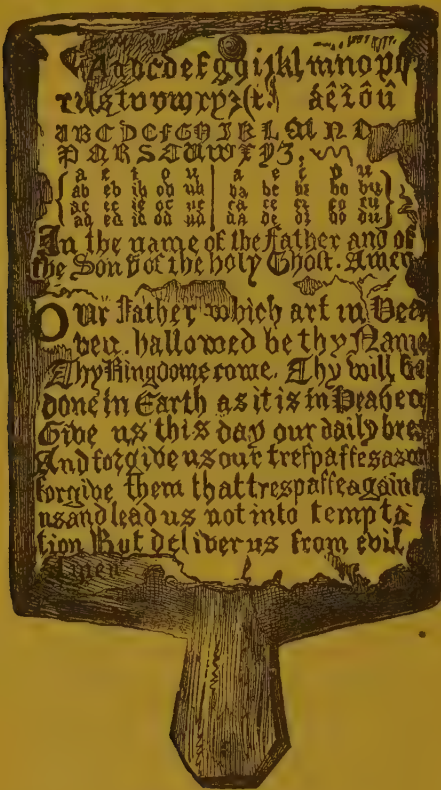 Aabcdefggijklmnopq
rsstuvwxyz&. áêîôû
ABCDEFGHIKLMNO
PQRSTUWXYZ.
a e i o u | a e i o u
ab eb ib ob ub | ba be bi bo bu
ac ec ic oc uc | ca ce ci co cu
ad ed id od ud | da de di do du
In the name of the father and of
the Son & of the holy Ghost. Amen
Our Father which art in Hea
ven. hallowed be thy Name
Thy Kingdome come. Thy will be
done in Earth as it is in Heaven
Give us this day our daily bre
And forgive us our trespasses as
forgive them that trespasse against
us and lead us not into tempta
tion But deliver us from evil
Amen